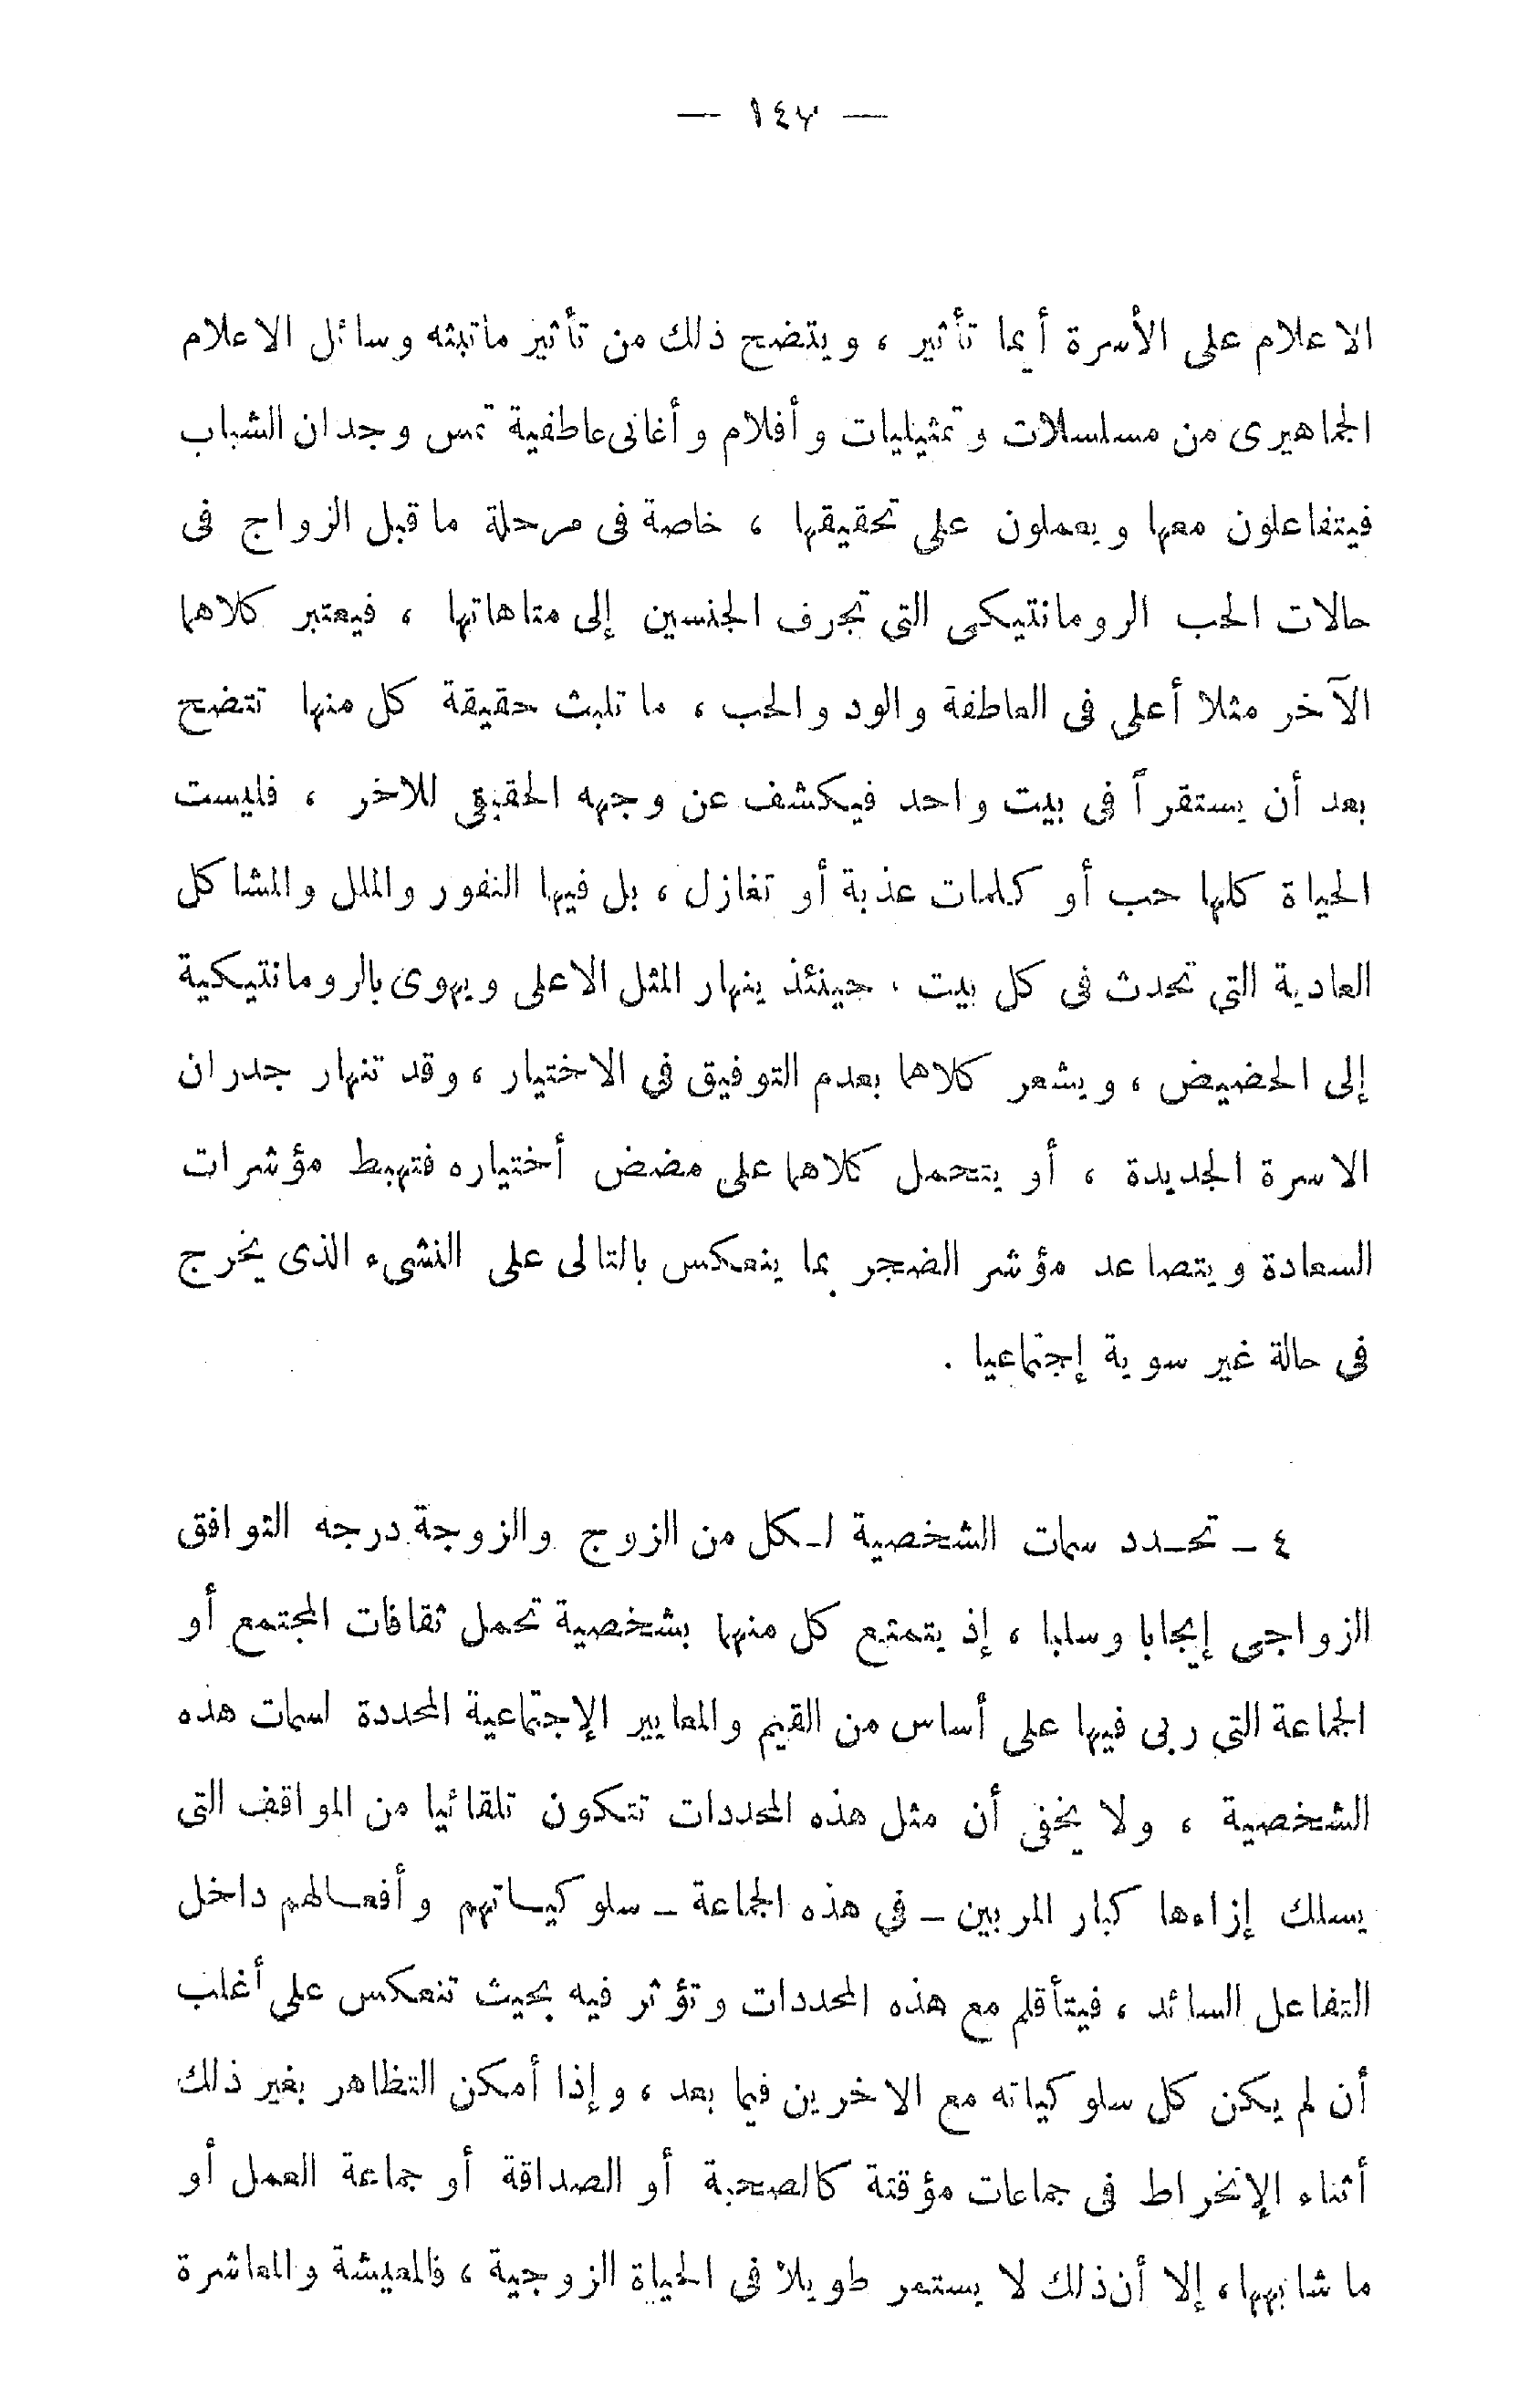 — ١٤٧ —
الاعلام على الأسرة أيما تأثير ، ويتضح ذلك من تأثير ماتبثه وسائل الاعلام
الجماهيرى من مسلسلات وتمثيليات وأفلام وأغانى عاطفية تمس وجدان الشباب
فيتفاعلون معها ويعملون على تحقيقها ، خاصة فى مرحلة ماقبل الزواج فى
حالات الحب الرومانتيكى التى تجرف الجنسين إلى متاهاتها ، فيعتبر كلاهما
الآخر مثلا أعلى فى العاطفة والود والحب ، ما تلبث حقيقة كل منها تتضح
بعد أن يستقرآ فى بيت واحد فيكشف عن وجهه الحقيقى للاخر ، فليست
الحياة كلها حب أو كلمات عذبة أو تغازل ، بل فيها النفور والملل والمشاكل
العادية التى تحدث فى كل بيت ، حينئذ ينهار المثل الاعلى ويهوى بالرومانتيكية
إلى الحضيض ، ويشعر كلاهما بعدم التوفيق فى الاختيار ، وقد تنهار جدران
الاسرة الجديدة ، أو يتحمل كلاهما على مضض أختياره فتهبط مؤشرات
السعادة ويتصاعد مؤشر الضجر بما ينعكس بالتالى على النشىء الذى يخرج
فى حالة غير سوية إجتماعيا .
٤ – تحـدد سمات الشخصية لـكل من الزوج والزوجة درجه التوافق
الزواجى إيجابا وسلبا ، إذ يتمتع كل منهما بشخصية تحمل ثقافات المجتمع أو
الجماعة التى ربى فيها على أساس من القيم والمعايير الإجتماعية المحددة لسمات هذه
الشخصية ، ولا يخفى أن مثل هذه المحددات تتكون تلقائيا من المواقف التى
يسلك إزاءها كبار المربين – فى هذه الجماعة – سلوكيـاتهم وأفعـالهم داخل
التفاعل السائد ، فيتأقلم مع هذه المحددات وتؤثر فيه بحيث تنعكس على أغلب
أن لم يكن كل سلوكياته مع الاخرين فيما بعد ، وإذا أمكن التظاهر بغير ذلك
أثناء الإنخراط فى جماعات مؤقتة كالصحبة أو الصداقة أو جماعة العمل أو
ما شابهها ، إلا أن ذلك لا يستمر طويلا فى الحياة الزوجية ، فالمعيشة والمعاشرة